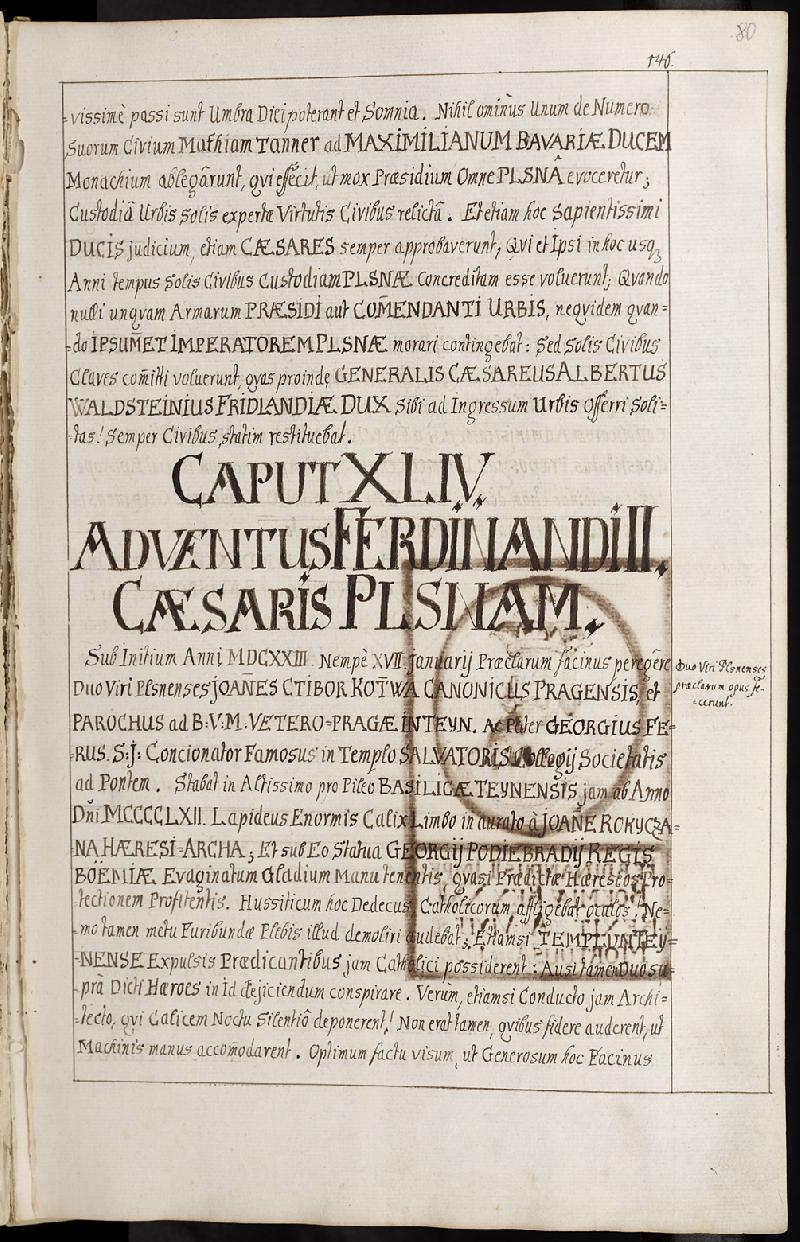 80
146.
-vissimè passi sunt Umbra Dici poterant et Somnia. Nihil ominùs Unum de Numero
Suorum Civium Mathiam Tanner ad MAXIMILIANUM BAVARIÆ DUCEM
Monachium ablegârunt, qvi effécit, ut mox Præsidium Omne PLSNÂ evoceretur;
Custodiâ Urbis Solis expertæ Virtutis Civibus relictâ. Et etiam hoc Sapientissimi
DUCIS judicium, etiam CÆSARES semper approbaverunt, Qvi et Ipsi in hoc usq3
Anni tempus Solis Civibus Custodiam PLSNÆ Concreditam esse voluerunt; Qvando
nulli unqvam Armarum PRÆSIDI aut COM̃ENDANTI URBIS, neqvidem qvan=
-do IPSUM̃ET IMPERATOREM PLSNÆ morari contingebat: Sed Solis Civibus
Claves com̃itti voluerunt, qvas proinde GENERALIS CÆSAREUS ALBERTUS
WALDSTEINIUS FRIDLANDIÆ DUX Sibi ad Ingressum Urbis Offerri Soli=
-tas! Semper Civibus statim restituebat.
CAPUT XLIV.
ADVÆNTUS FERDINANDI II.
CÆSARIS PLSNAM.
Sub Initium Anni MDCXXIII. Nempè XVII. Januarij Præclarum facinus peregêre
Duo Viri Plsnenses JOAÑES CTIBOR KOTWA CANONICUS PRAGENSIS, et
PAROCHUS ad B.V.M. VETERO-PRAGÆ IN TEYN. Ac Pater GEORGIUS FE=
-RUS. S:J: Concionator Famosus in Templo SALVATORIS Collegij Societatis
ad Pontem. Stabat in Altissimo pro Pileo BASILICÆ TEYNENSIS jam ab Anno
Dñi MCCCCLXII. Lapideus Enormis Calix Limbo in aurato à JOAÑE ROKYCZA=
NA HÆRESI-ARCHA; Et sub Eo Statua GEORGIJ PODIEBRADIJ REGIS
BOËMIÆ Evaginatum Gladium Manu tenentis, qvasi Prædictæ Hæreseos Pro=
-tectionem Profitentis. Hussiticum hoc Dedecus, Catholicorum affligebat oculos, Ne=
-mo tamen metu Furibundæ Plebis illud demoliri audebat; Etiamsi TEMPLUM TEY=
-NENSE Expulsis Prædicantibus jam Catholici possiderent: Ausi tamen Duo su=
-prà Dicti Hæroes in Id dejiciendum conspirare. Verùm, etiamsi Conducto jam Archi=
-tecto, qvi Calicem Noctu Silentiô deponerent! Non erat tamen, qvibus fidere auderent, ut
Machinis manus accomodarent. Optimum factu visum, ut Generosum hoc Facinus
Duo Viri Plsnenses
præclarum opus fe-
-cerunt.